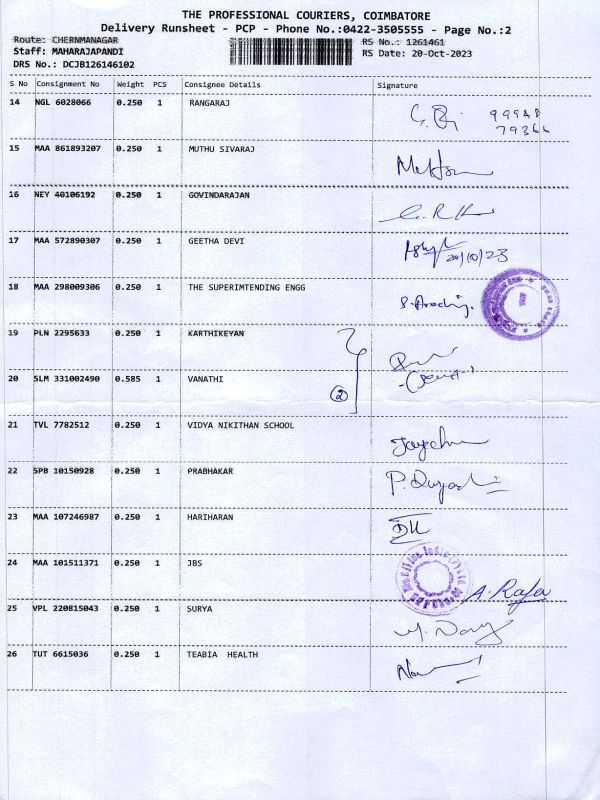 THE PROFESSIONAL COURIERS, COIMBATORE
Delivery Runsheet - PCP - Phone No.:0422-3505555 - Page No.:2
Route: CHERNMANAGAR
RS No.: 1261461
Staff: MAHARAJAPANDI
RS Date: 20-Oct-2023
DRS No.: DCJB126146102
S No Consignment No Weight PCS Consignee Details Signature
14 NGL 6028066 0.250 1 RANGARAJ
99948
79366
15 MAA 861893207 0.250 1 MUTHU SIVARAJ
16 NEY 40106192 0.250 1 GOVINDARAJAN
17 MAA 572890307 0.250 1 GEETHA DEVI 20/10/23
18 MAA 298009306 0.250 1 THE SUPERIMTENDING ENGG
19 PLN 2295633 0.250 1 KARTHIKEYAN
20 SLM 331002490 0.585 1 VANATHI 2
21 TVL 7782512 0.250 1 VIDYA NIKITHAN SCHOOL
22 SPB 10150928 0.250 1 PRABHAKAR
23 MAA 107246987 0.250 1 HARIHARAN
24 MAA 101511371 0.250 1 JBS
A. Raja
25 VPL 220815043 0.250 1 SURYA
26 TUT 6615036 0.250 1 TEABIA HEALTH